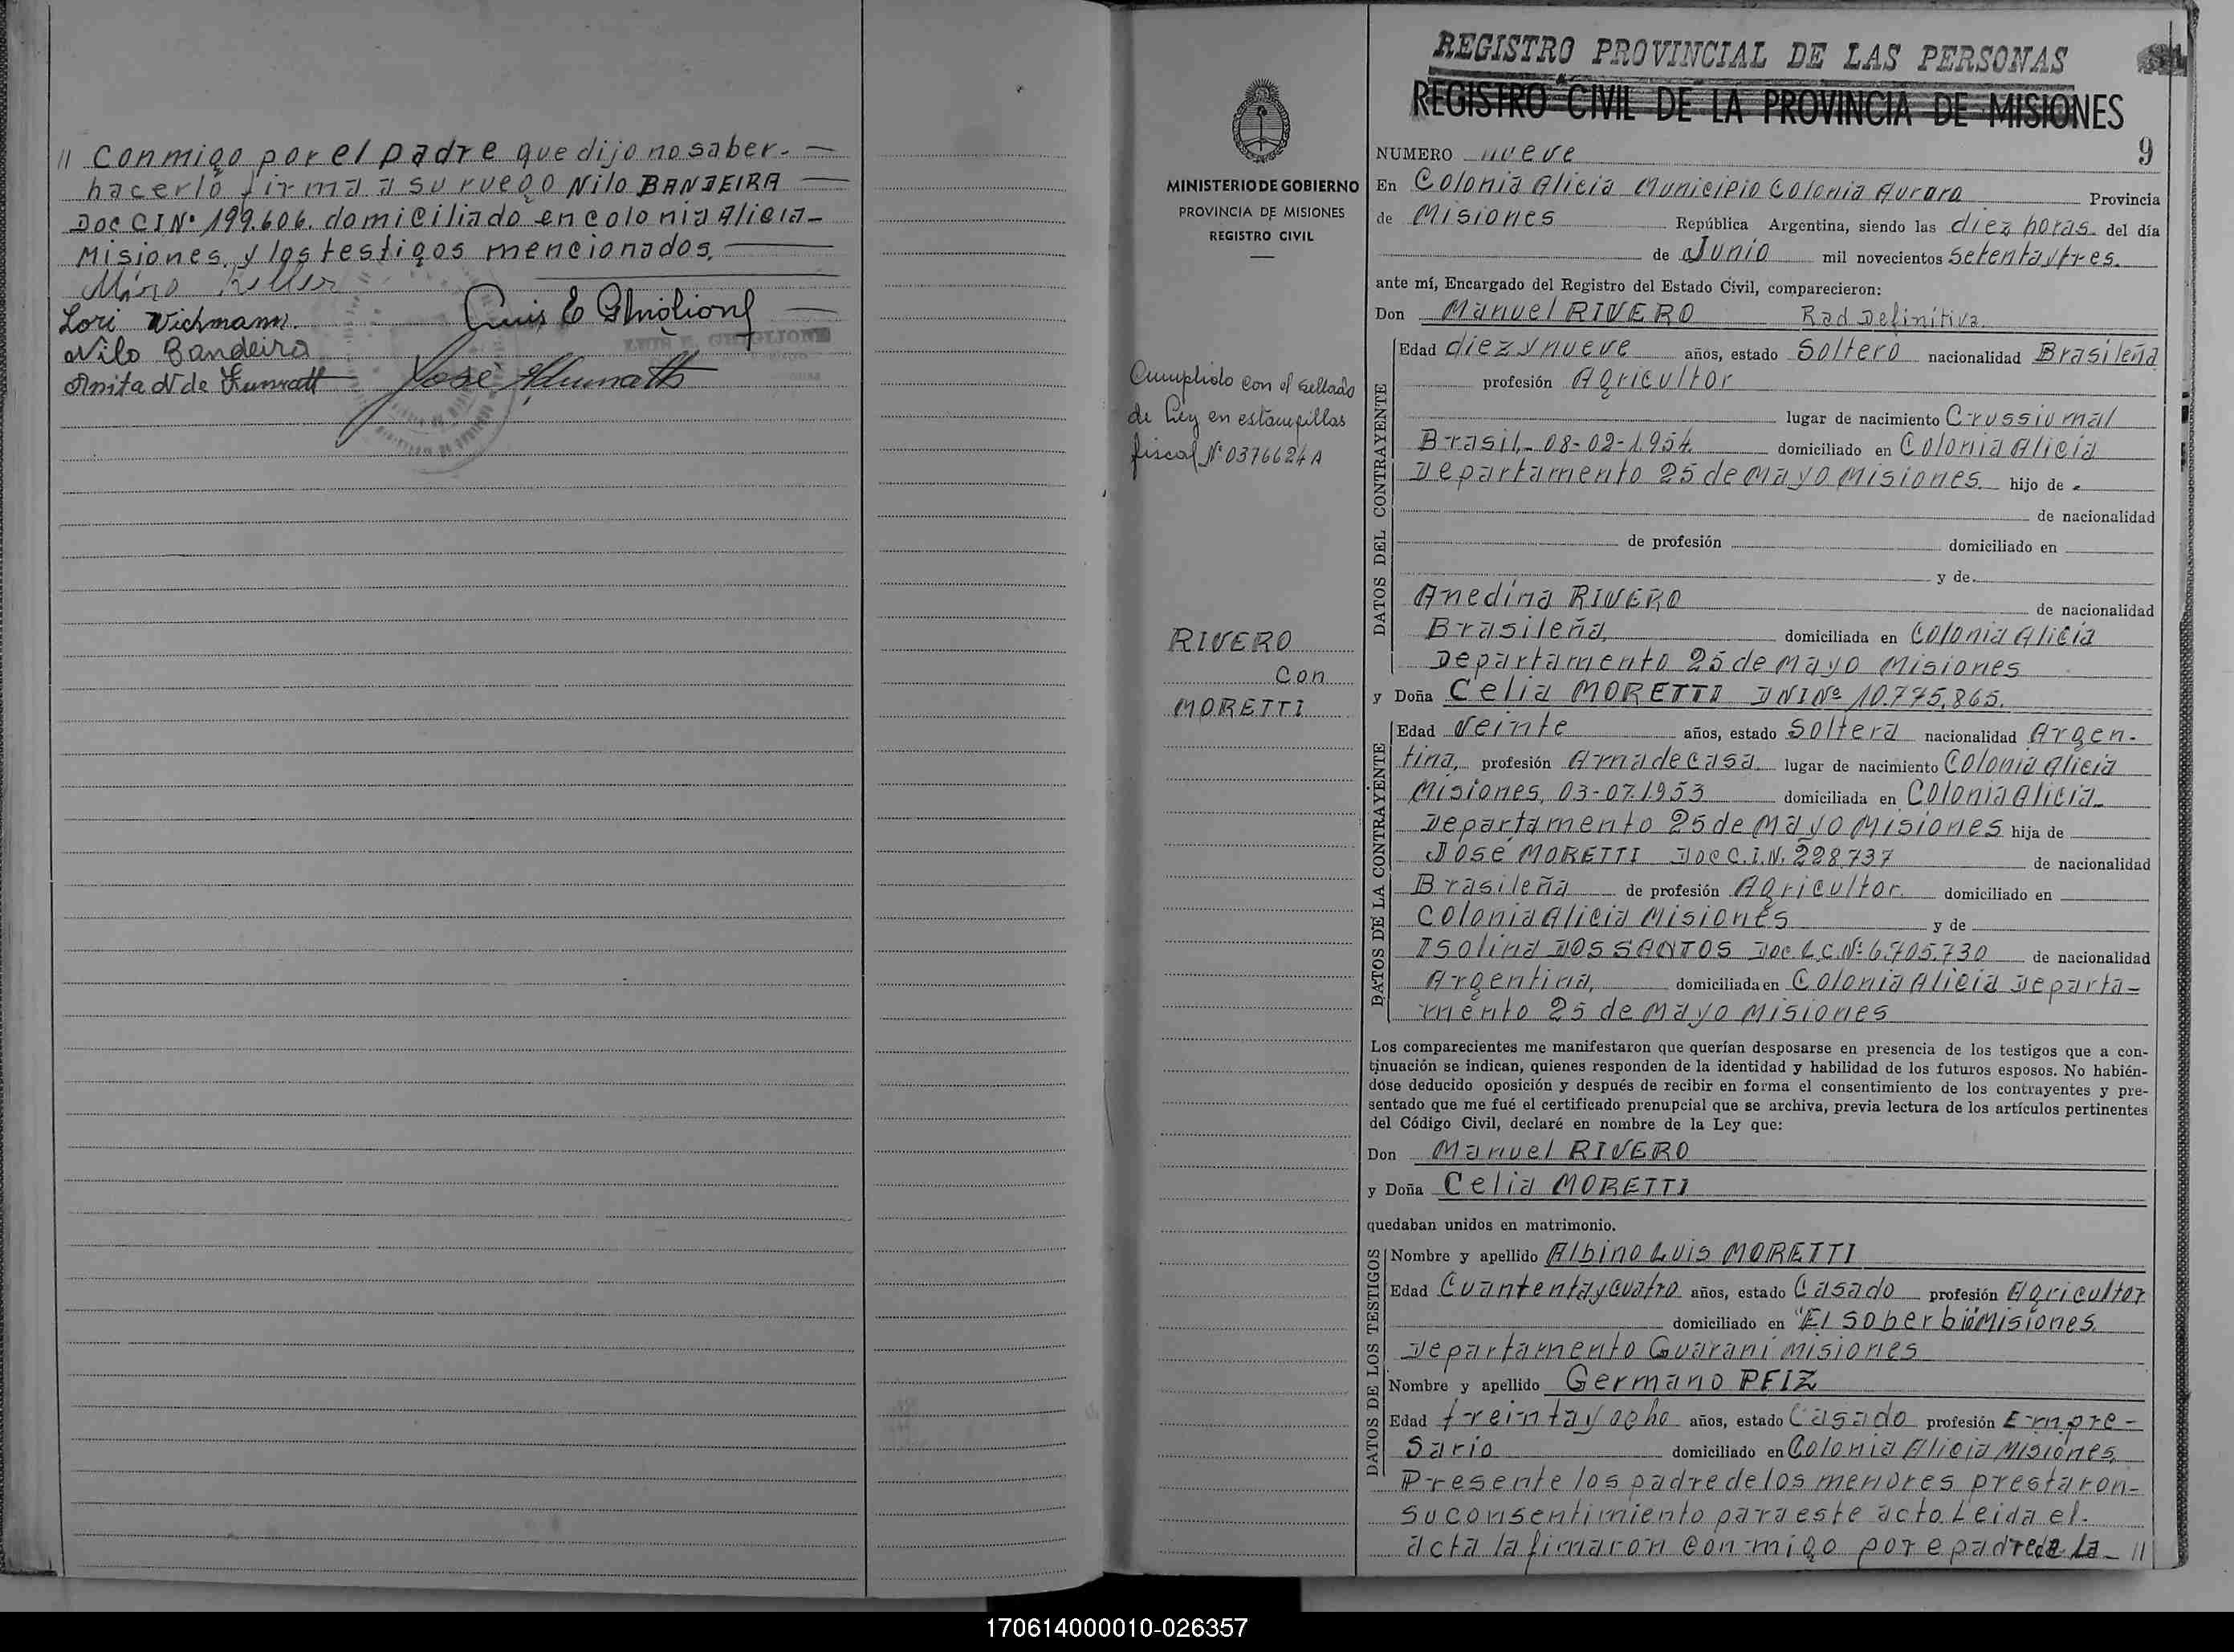 // Conmigo por el padre que dijo no saber-
hacerlo firma a su ruego Nilo BANDEIRA
Doc CI Nº 199.606. domiciliado en colonia Alicia-
Misiones, y los testigos mencionados,
Lori Wichmann.
Nilo Bandeira
Anita N de Kunrath
José Kunrath
MINISTERIO DE GOBIERNO
PROVINCIA DE MISIONES
REGISTRO CIVIL
Cumplido con el sellado
de Ley en estampillas
fiscal Nº 0376624 A
RIVERO
Con
MORETTI
REGISTRO PROVINCIAL DE LAS PERSONAS
REGISTRO CIVIL DE LA PROVINCIA DE MISIONES
NUMERO nueve 9
En Colonia Alicia Municipio Colonia Aurora Provincia
de Misiones República Argentina, siendo las diez horas. del día
de Junio mil novecientos setentaytres.
ante mí, Encargado del Registro del Estado Civil, comparecieron:
Don Manuel RIVERO Rad Definitiva.
DATOS DEL CONTRAYENTE
Edad diez y nueve años, estado Soltero nacionalidad Brasileña
profesión Agricultor
lugar de nacimiento Crussiumal
Brasil,- 08-02-1954. domiciliado en Colonia Alicia
Departamento 25 de Mayo Misiones. hijo de -
de nacionalidad
de profesión domiciliado en
y de.
Anedina RIVERO de nacionalidad
Brasileña, domiciliada en Colonia Alicia
Departamento 25 de Mayo Misiones
y Doña Celia MORETTI DNI Nº 10.775.865.
DATOS DE LA CONTRAYENTE
Edad Veinte años, estado Soltera nacionalidad Argen-
tina, profesión Ama de casa. lugar de nacimiento Colonia Alicia
Misiones, 03-07.1953 domiciliada en Colonia Alicia-
Departamento 25 de Mayo Misiones hija de
José MORETTI Doc C.I.N. 228.737 de nacionalidad
Brasileña de profesión Agricultor. domiciliado en
Colonia Alicia Misiones y de
Isolina DOS SANTOS Doc. L.C.Nº 6.705.730 de nacionalidad
Argentina, domiciliada en Colonia Alicia Departa-
mento 25 de Mayo Misiones
Los comparecientes me manifestaron que querían desposarse en presencia de los testigos que a con-
tinuación se indican, quienes responden de la identidad y habilidad de los futuros esposos. No habién-
dose deducido oposición y después de recibir en forma el consentimiento de los contrayentes y pre-
sentado que me fué el certificado prenupcial que se archiva, previa lectura de los artículos pertinentes
del Código Civil, declaré en nombre de la Ley que:
Don Manuel RIVERO
y Doña Celia MORETTI
quedaban unidos en matrimonio.
DATOS DE LOS TESTIGOS
Nombre y apellido Albino Luis MORETTI
Edad Cuantentaycuatro años, estado Casado profesión Agricultor
domiciliado en "El Soberbio" Misiones.
Departamento Guaraní Misiones
Nombre y apellido Germano PFIZ
Edad treinta y ocho años, estado Casado profesión Empre-
sario domiciliado en Colonia Alicia Misiones,
Presente los padre de los menores prestaron-
su consentimiento para este acto. Leida el.
acta la fimaron conmigo por e padre de La- //
170614000010-026357